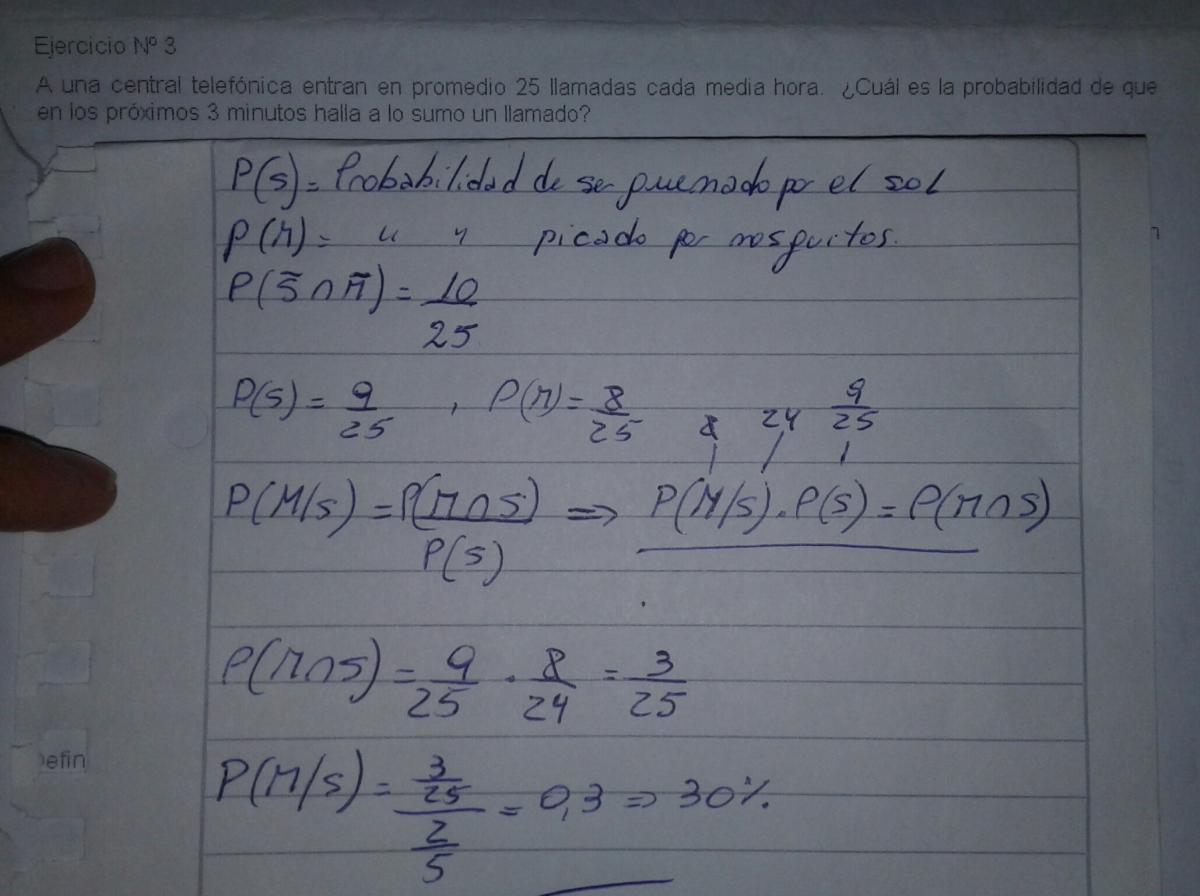 Ejercicio Nº 3
A una central telefónica entran en promedio 25 llamadas cada media hora. ¿Cuál es la probabilidad de que
en los próximos 3 minutos halla a lo sumo un llamado?
P(s) = Probabilidad de ser quemado por el sol
P(M) = " " picado por mosquitos.
P(S̄ ∩ M̄) = 10/25
P(s) = 9/25 , P(M) = 8/25 8 24 9/25
P(M/s) = P(M∩s)/P(s) => P(M/s) . P(s) = P(M∩s)
P(M∩s) = 9/25 . 8/24 = 3/25
efin
P(M/s) = (3/25)/(2/5) = 0,3 => 30%.